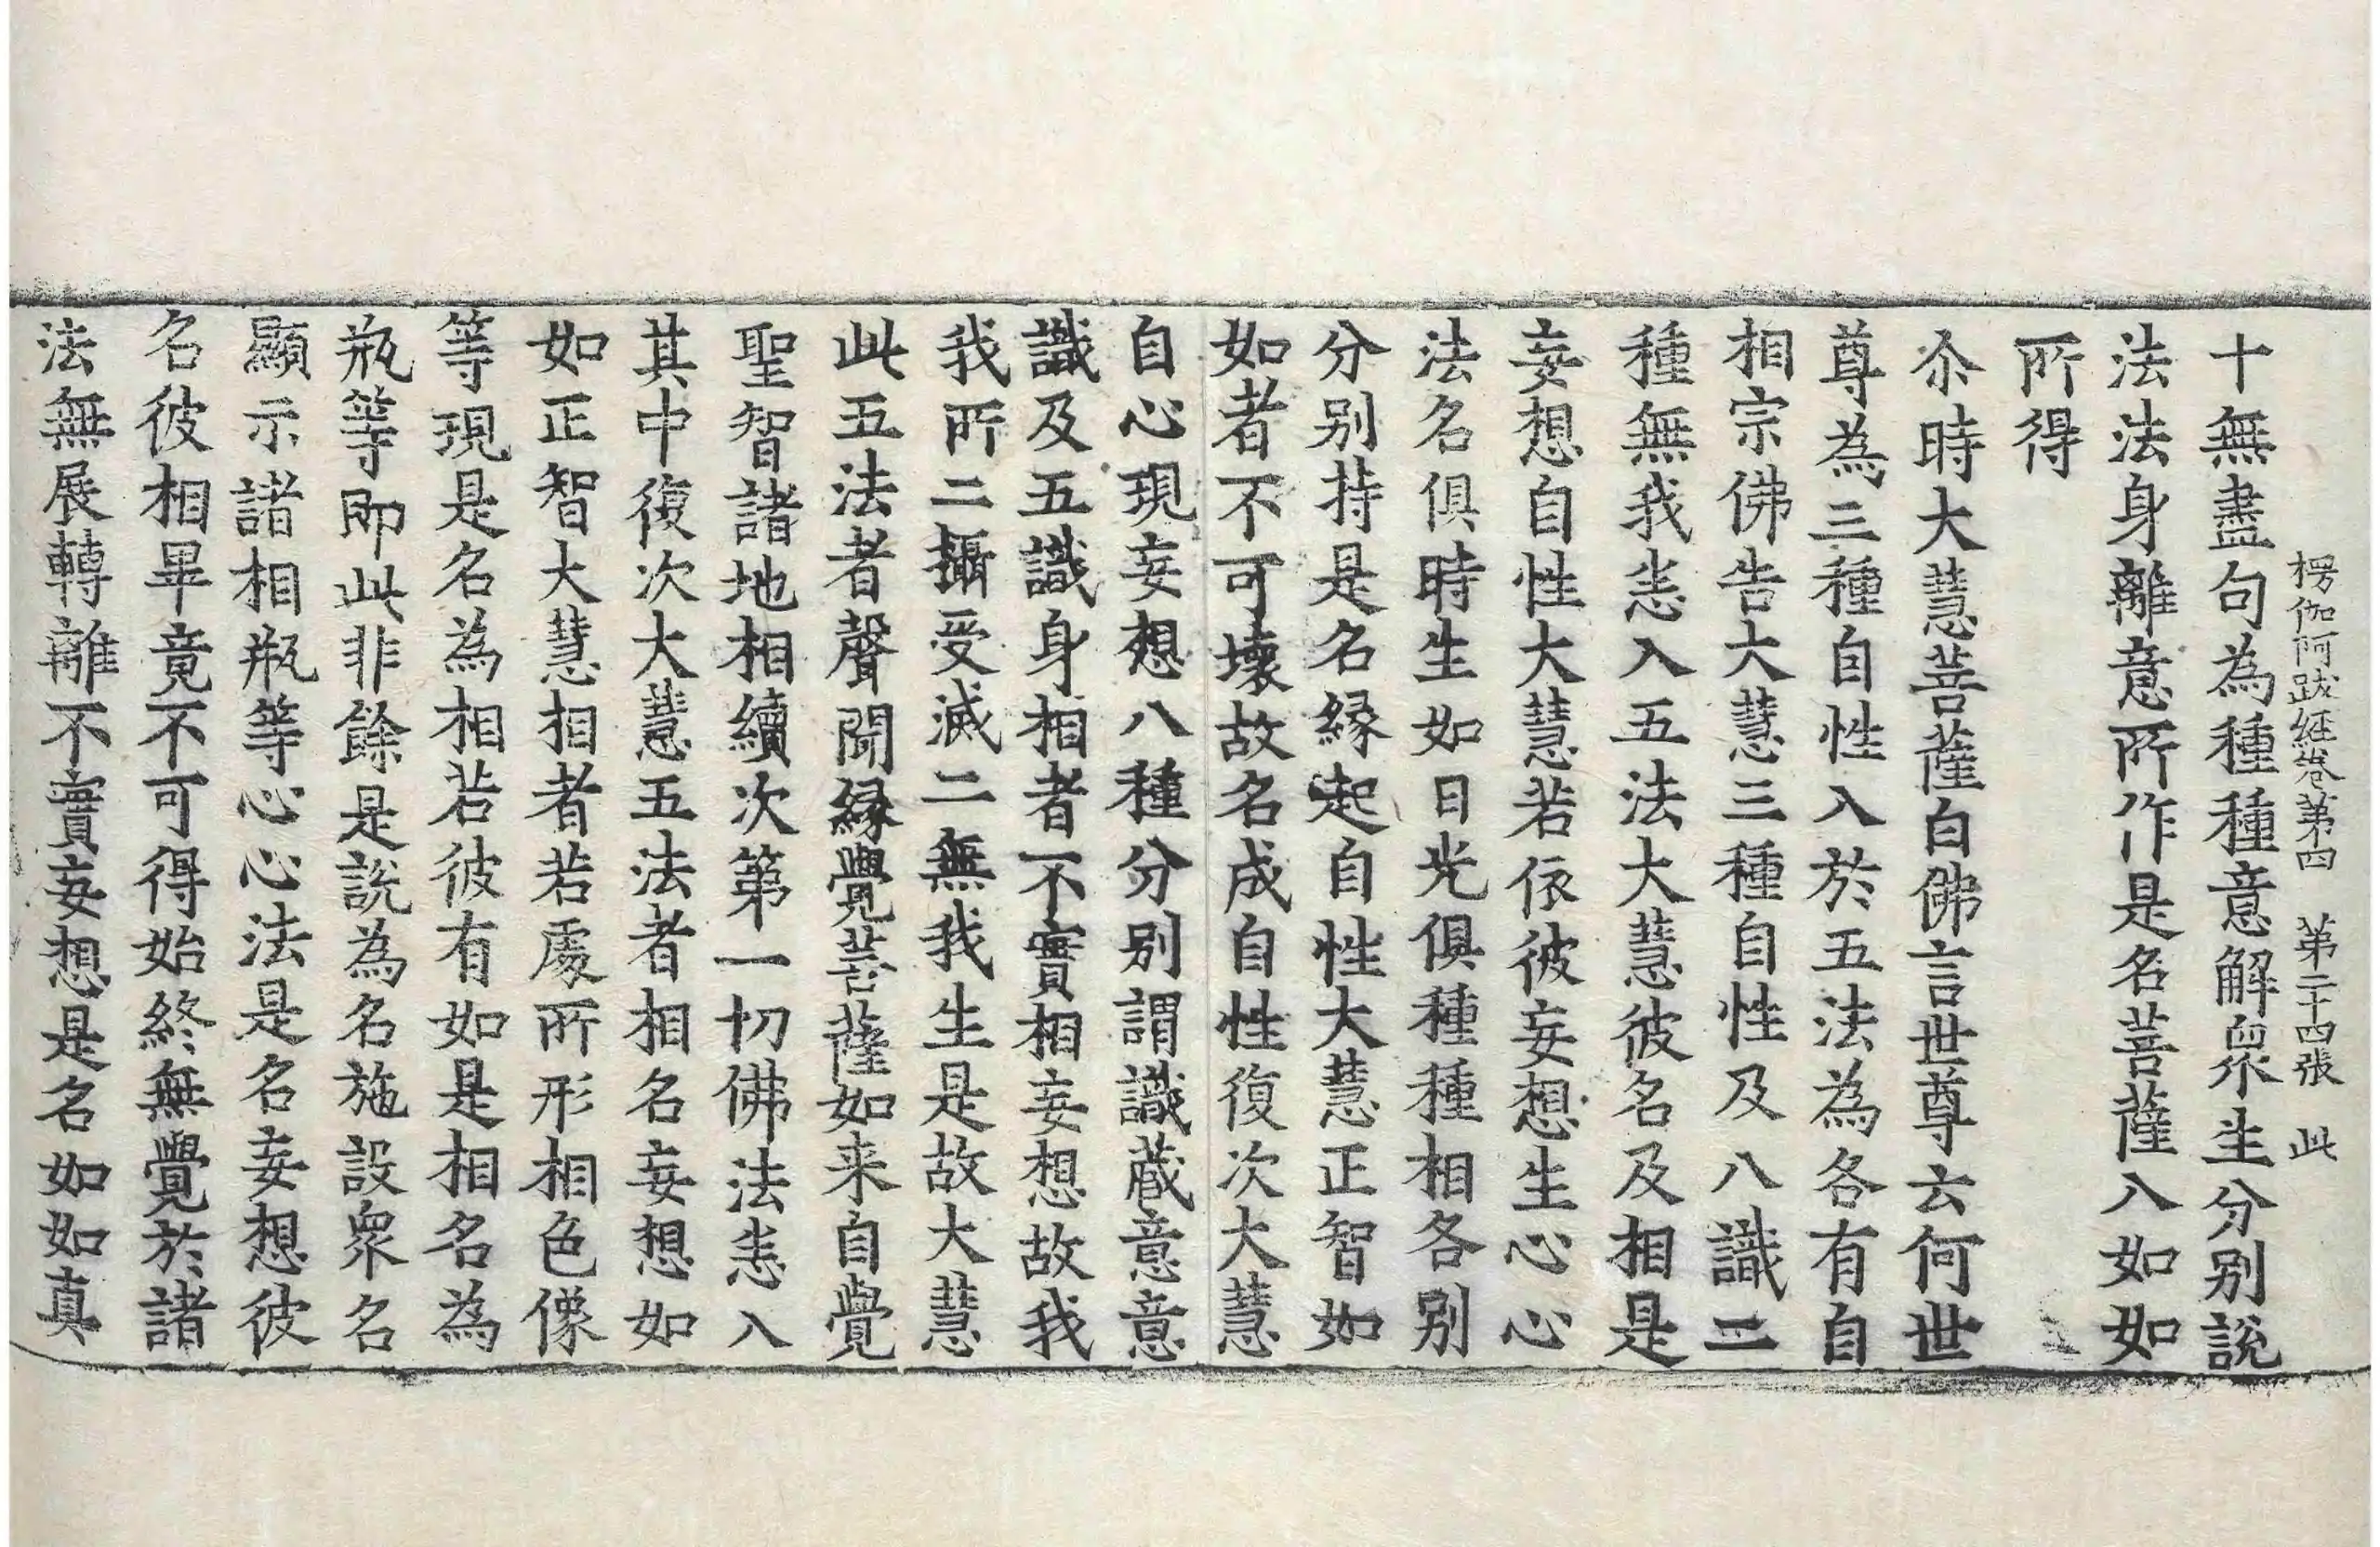 楞伽阿跋経卷第四 第二十四張 此
十無盡句為種種意解眾生分別說
法法身離意所作是名菩薩入如如
所得
尒時大慧菩薩白佛言世尊云何世
尊為三種自性入於五法為各有自
相宗佛告大慧三種自性及八識二
種無我悉入五法大慧彼名及相是
妄想自性大慧若依彼妄想生心心
法名俱時生如日光俱種種相各別
分別持是名緣起自性大慧正智如
如者不可壞故名成自性復次大慧
自心現妄想八種分別謂識藏意意
識及五識身相者不實相妄想故我
我所二攝受滅二無我生是故大慧
此五法者聲聞緣覺菩薩如来自覺
聖智諸地相續次第一切佛法悉入
其中復次大慧五法者相名妄想如
如正智大慧相者若處所形相色像
等現是名為相若彼有如是相名為
瓶等即此非餘是說為名施設眾名
顯示諸相瓶等心心法是名妄想彼
名彼相畢竟不可得始終無覺於諸
法無展轉離不實妄想是名如如真